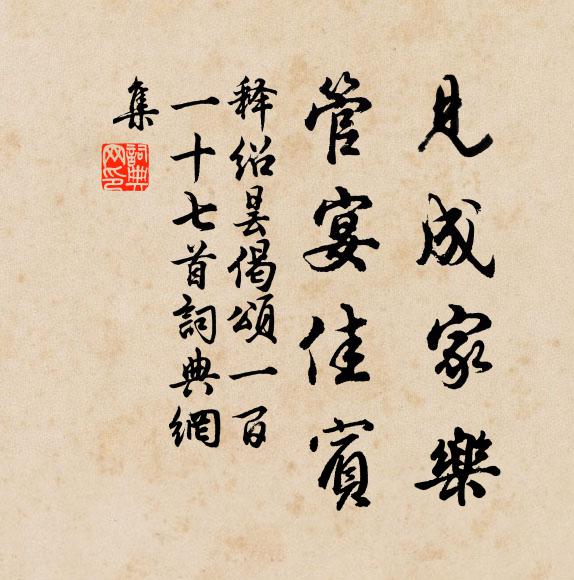 見成家樂
管宴佳賓
释紹曇偈頌一百
一十七首詞典網
集
詞典
网印